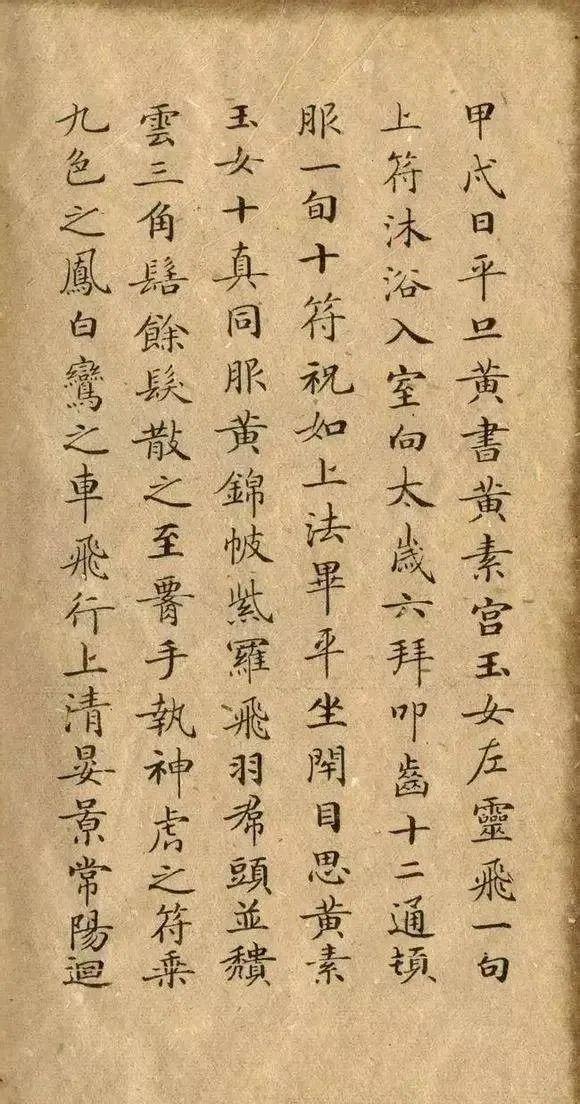 甲戌日平旦黄書黄素宫玉女左靈飛一旬
上符沐浴入室向太歲六拜叩齒十二通頓
服一旬十符祝如上法畢平坐閇目思黄素
玉女十真同服黄錦帔紫羅飛羽帬頭並頽
雲三角髻餘髮散之至𦝫手執神虎之符乗
九色之鳳白鸞之車飛行上清晏景常陽迴